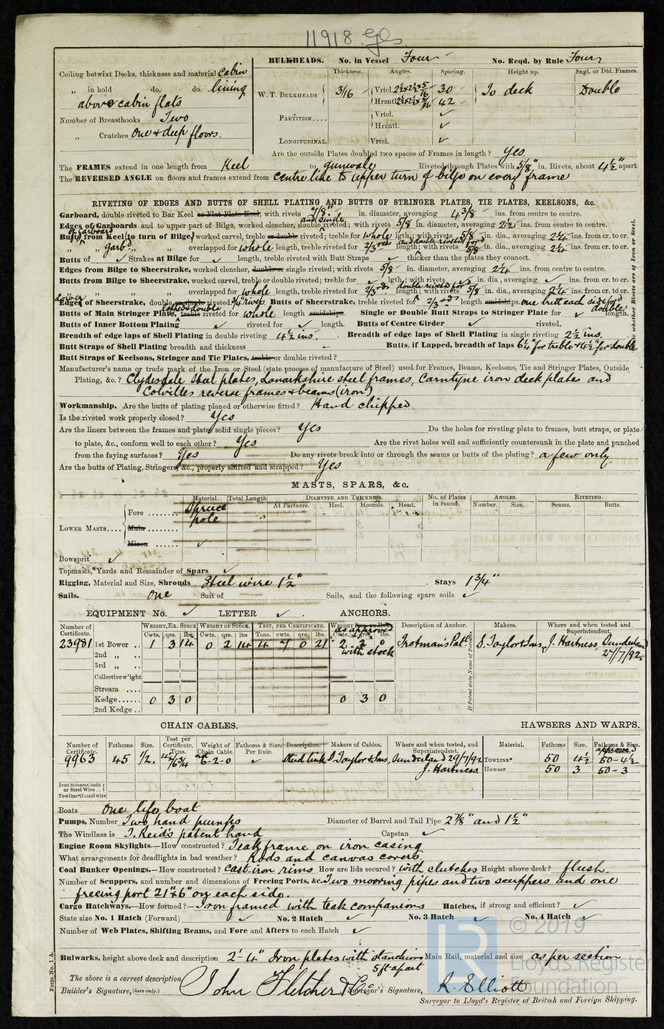 11918 Gls
Ceiling betwixt Decks, thickness and material cabin
„ in hold do. do. lining
above cabin flats
Number of Breasthooks Two
„ Crutches one & deep floors.
BULKHEADS. No. in Vessel Four No. Reqd. by Rule Four
Thickness. Angles. Spacing. Height up. Sngl. or Dbl. Frames.
W. T. BULKHEADS 3/16 Vrtcl. 30 To deck Double
Hrzntl. 42
PARTITION Vrtcl. ✓
Hrzntl. ✓
LONGITUDINAL Vrtcl. ✓
Are the outside Plates doubled two spaces of Frames in length? Yes
The FRAMES extend in one length from Keel to gunwale Riveted through Plates with 5/8 in. Rivets, about 4½ apart
The REVERSED ANGLE on floors and frames extend from centre line to upper turn of bilge on every frame
RIVETING OF EDGES AND BUTTS OF SHELL PLATING AND BUTTS OF STRINGER PLATES, TIE PLATES, KEELSONS, &c.
Garboard, double riveted to Bar Keel or Flat Plate Keel, with rivets 7/8 in. diameter, averaging 4 3/8 ins. from centre to centre.
Edges of Garboards and to upper part of Bilge, worked clencher, double riveted; with rivets 5/8 in. diameter, averaging 2½ ins. from centre to centre.
Butts from Keel to turn of Bilge, worked carved, treble or double riveted; treble for whole length; with rivets 5/8 in. dia., averaging 2¼ ins. from cr. to cr.
„ garbd „ overlapped for whole length, treble riveted for 2/3rds length; with rivets 5/8 in. dia., averaging 2¼ ins. from cr. to cr.
Butts of ✓ Strakes at Bilge for ✓ length, treble riveted with Butt Straps ✓ thicker than the plates they connect.
Edges from Bilge to Sheerstrake, worked clencher, double or single riveted; with rivets 5/8 in. diameter, averaging 2¼ ins. from centre to centre.
Butts from Bilge to Sheerstrake, worked carved, treble or double riveted; treble for ✓ length; with rivets ✓ in. dia., averaging ✓ ins. from cr. to cr.
„ „ „ overlapped for whole length, treble riveted for 2/3rds length; with rivets 5/8 in. dia., averaging 2¼ ins. from cr. to cr.
Edges of Sheerstrake, double or single riveted. Butts of Sheerstrake, treble riveted for 2/3rds length amidships, one butt each side of double
Butts of Main Stringer Plate, treble riveted for whole length amidships. Single or Double Butt Straps to Stringer Plate for ✓ length.
Butts of Inner Bottom Plating ✓ riveted for ✓ length. Butts of Centre Girder ✓ riveted.
Breadth of edge laps of Shell Plating in double riveting 4½ ins. Breadth of edge laps of Shell Plating in single riveting 2½ ins.
Butt Straps of Shell Plating, breadth and thickness ✓ Butts, if Lapped, breadth of laps 6¼ for treble & 4½ for double
Butt Straps of Keelsons, Stringer and Tie Plates, treble or double riveted?
Manufacturer's name or trade mark of the Iron or Steel (state process of manufacture of Steel) used for Frames, Beams, Keelsons, Tie and Stringer Plates, Outside
Plating, &c.? Clydesdale Steel plates, Lanarkshire steel frames, Carntyne iron deck plates and
Colvilles reverse frames & beams (iron)
Workmanship. Are the butts of plating planed or otherwise fitted? Hand chipped
Is the riveted work properly closed? Yes
Are the liners between the frames and plates solid single pieces? Yes Do the holes for riveting plate to frames, butt straps, or plate
to plate, &c., conform well to each other? Yes Are the rivet holes well and sufficiently countersunk in the plate and punched
from the faying surfaces? Yes Do any rivets break into or through the seams or butts of the plating? a few only
Are the butts of Plating, Stringers, &c., properly shifted and strapped? Yes
MASTS, SPARS, &c.
Material. Total Length. DIAMETER AND THICKNESS. No. of Plates in round. ANGLES. RIVETING.
At Partners. Heel. Hounds. Head. Number. Size. Seams. Butts.
LOWER MASTS Fore Spruce
Main pole
Mizen ✓
Bowsprit ✓
Topmasts, Yards and Remainder of Spars ✓
Rigging, Material and Size, Shrouds Steel wire 1½" Stays 1¾"
Sails. One Suit of Sails, and the following spare sails ✓
EQUIPMENT No. ✓ LETTER ✓ ANCHORS.
Number of Certificate. WEIGHT, EX. STOCK WEIGHT OF STOCK. TEST, PER CERTIFICATE. Description of Anchor. Makers. Where and when tested, and Superintendent.
Cwts. qrs. lbs. Cwts. qrs. lbs. Tons. cwts. qrs. lbs. Cwts. qrs. lbs.
23931 1st Bower 1 3 14 0 2 14 4 7 0 21 2 2 0 Trotman's Patt. S. Taylor & Sons, J. Hartness, Sunderland
2nd „ with stock 27/7/92
3rd „
Collective w'ight
Stream
Kedge 0 3 0 0 3 0
2nd Kedge
CHAIN CABLES. HAWSERS AND WARPS.
Number of Certificate. Fathoms. Size. Test per Certificate. Tons. Weight of Chain Cable. Fathoms & Size, Per Rule. Description. Makers of Cables. Where and when tested, and Superintendent. Material. Fathoms Size. Fathoms & Size.
9963 45 1/2 6-2-0 ✓ Stud link S. Taylor & Sons, Sunderland 29/7/92 TOWLINE 50 4½ 50-4½
J. Hartness HAWSER 50 3 50-3
Boats One life boat
Pumps, Number Two hand pumps Diameter of Barrel and Tail Pipe 2⅞" and 1½"
The Windlass is T. Reid's patent hand Capstan ✓
Engine Room Skylights.—How constructed? Teak frame on iron casing
What arrangements for deadlights in bad weather? Rods and canvas covers
Coal Bunker Openings.—How constructed? Cast iron rims How are lids secured? with clutches Height above deck? flush.
Number of Scuppers, and number and dimensions of Freeing Ports, &c. Two mooring pipes and two scuppers and one
freeing port 21"x6" on each side.
Cargo Hatchways.—How formed? Iron framed with teak companions Hatches, if strong and efficient? ✓
State size No. 1 Hatch (Forward) ✓ No. 2 Hatch ✓ No. 3 Hatch ✓ No. 4 Hatch ✓
Number of Web Plates, Shifting Beams, and Fore and Afters to each Hatch ✓
Bulwarks, height above deck and description 2'-4" Iron plates with stanchions Main Rail, material and size as per section
5 ft apart
The above is a correct description
Builder's Signature, (here only.) John Fletcher & Co. Surveyor's Signature, R. Elliott
Surveyor to Lloyd's Register of British and Foreign Shipping.
Form No. 1 A.
© 2019
Lloyd's Register
Foundation